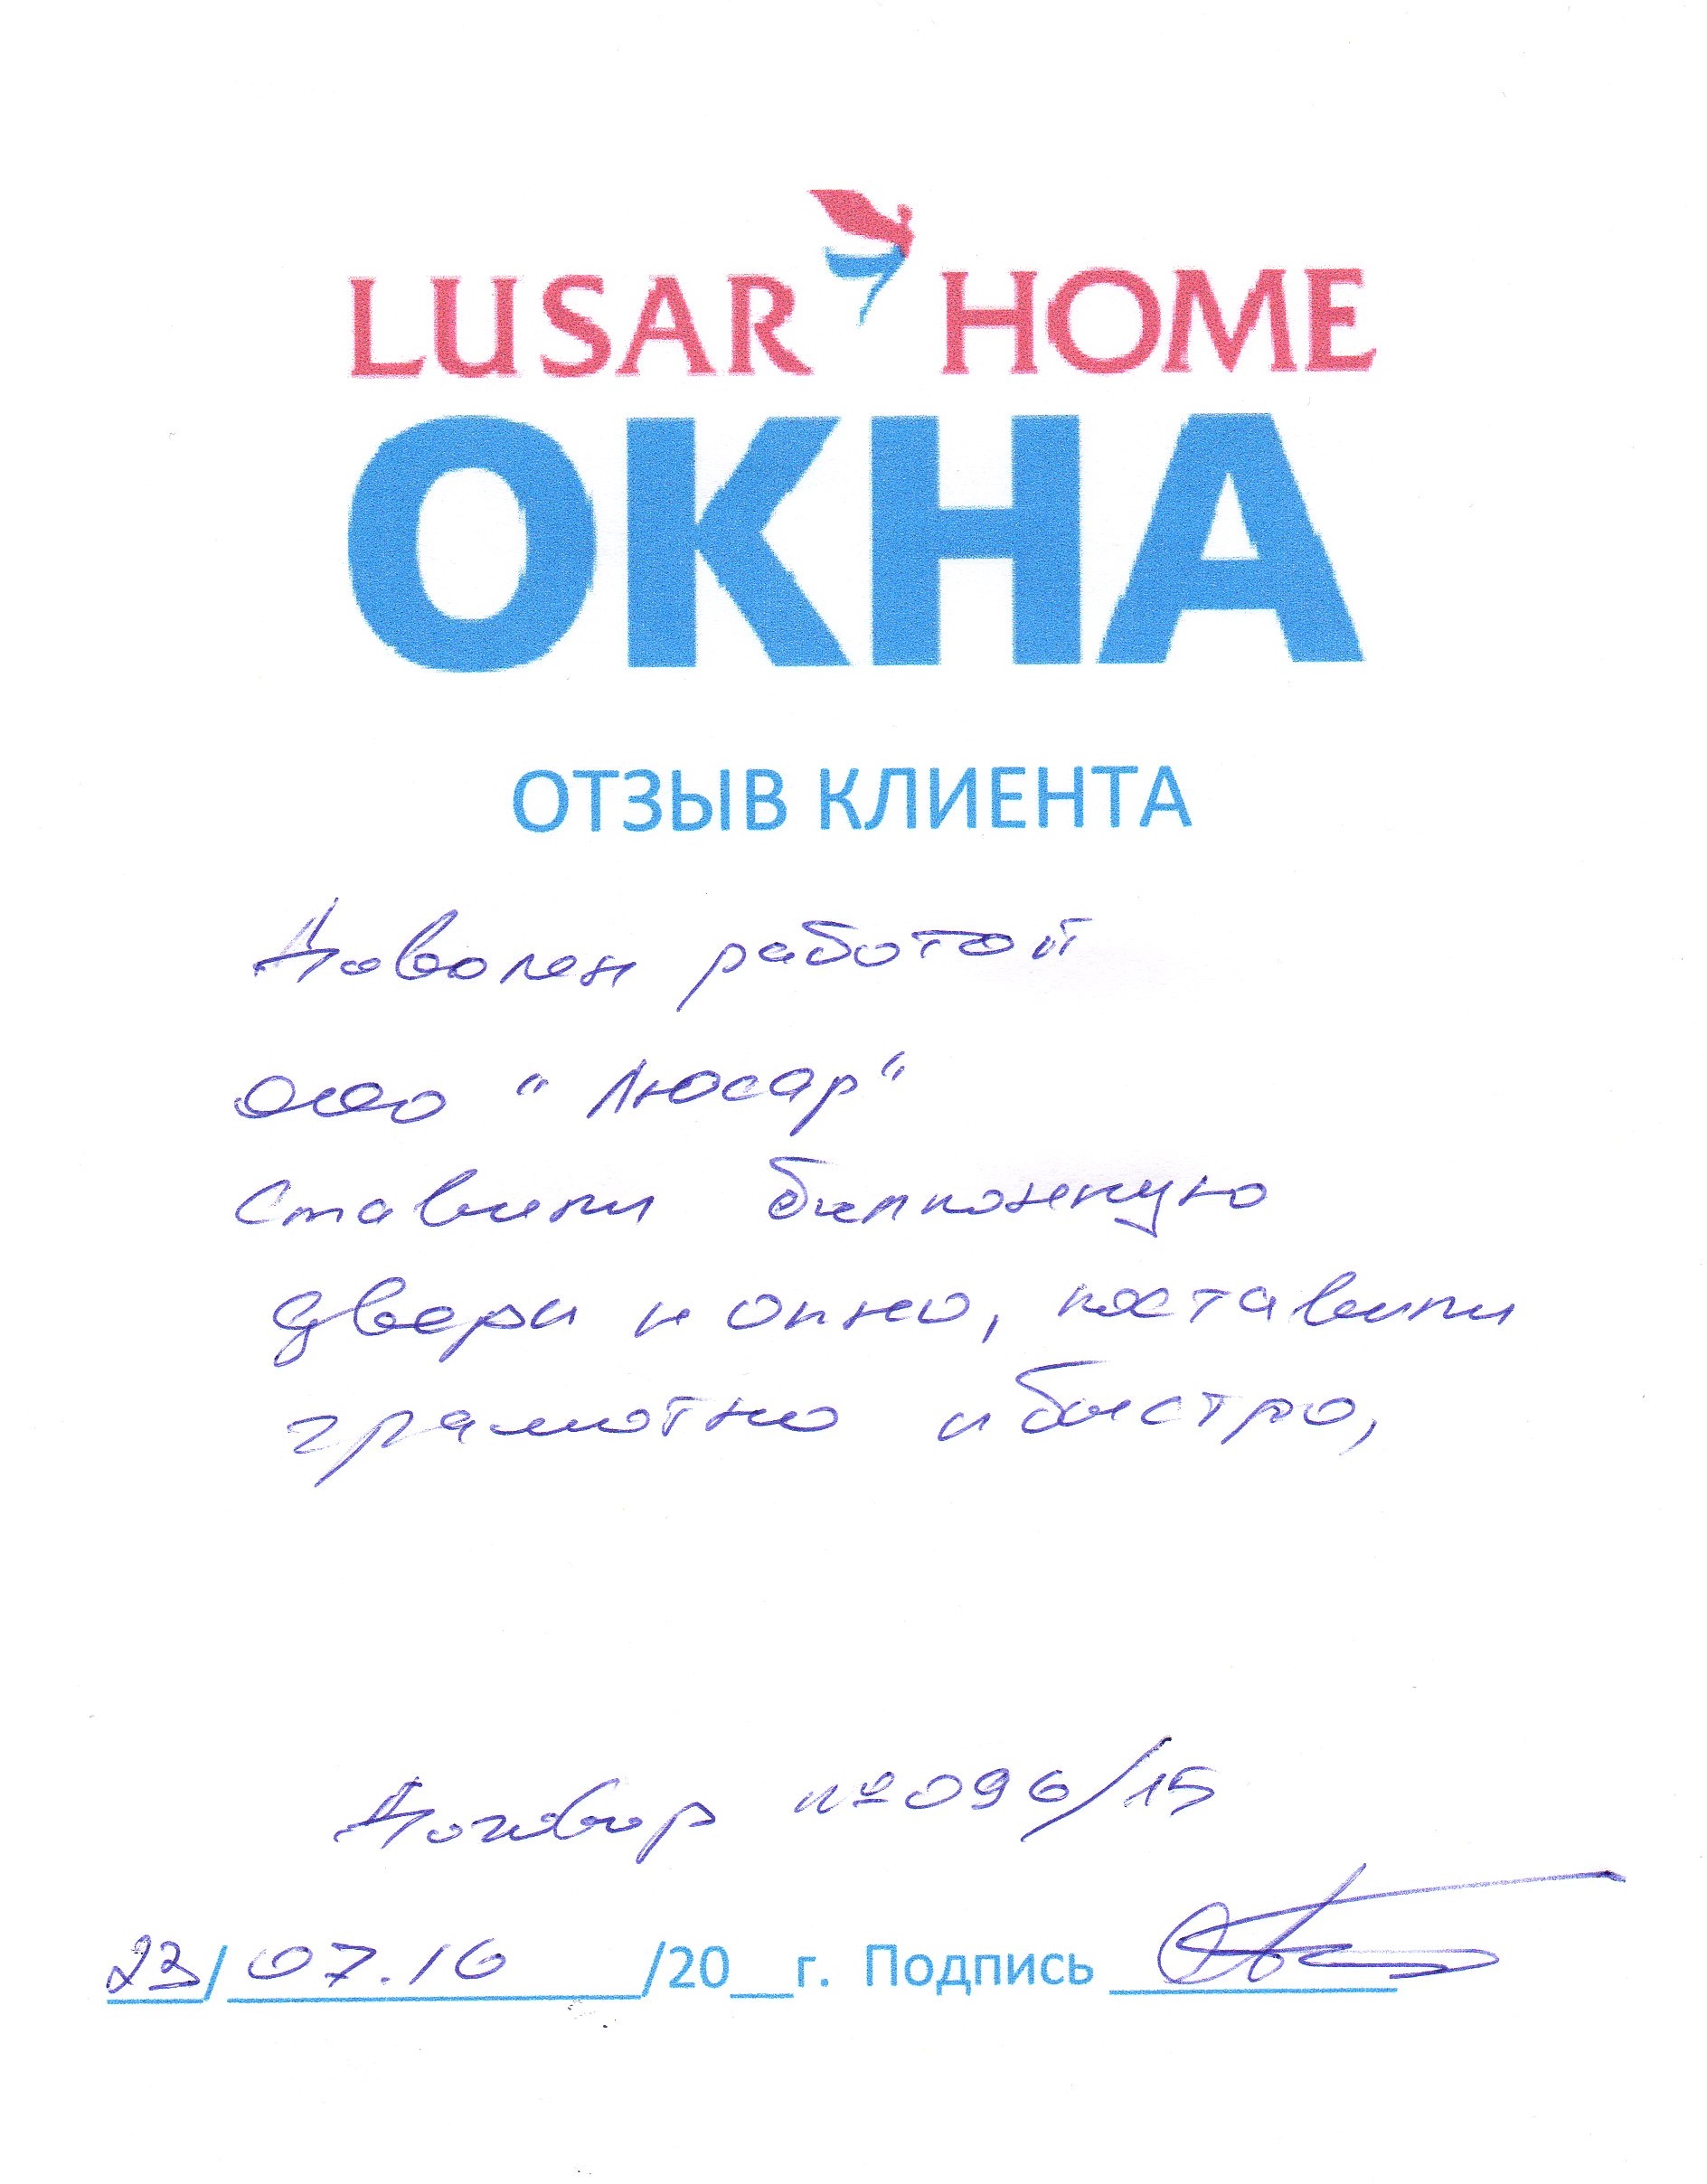 LUSAR HOME
ОКНА
ОТЗЫВ КЛИЕНТА
Доволен работой
ООО "Люсар"
Ставили балконную
двери и окно, поставили
грамотно и быстро,
Договор №096/15
23/07.16/20__г. Подпись